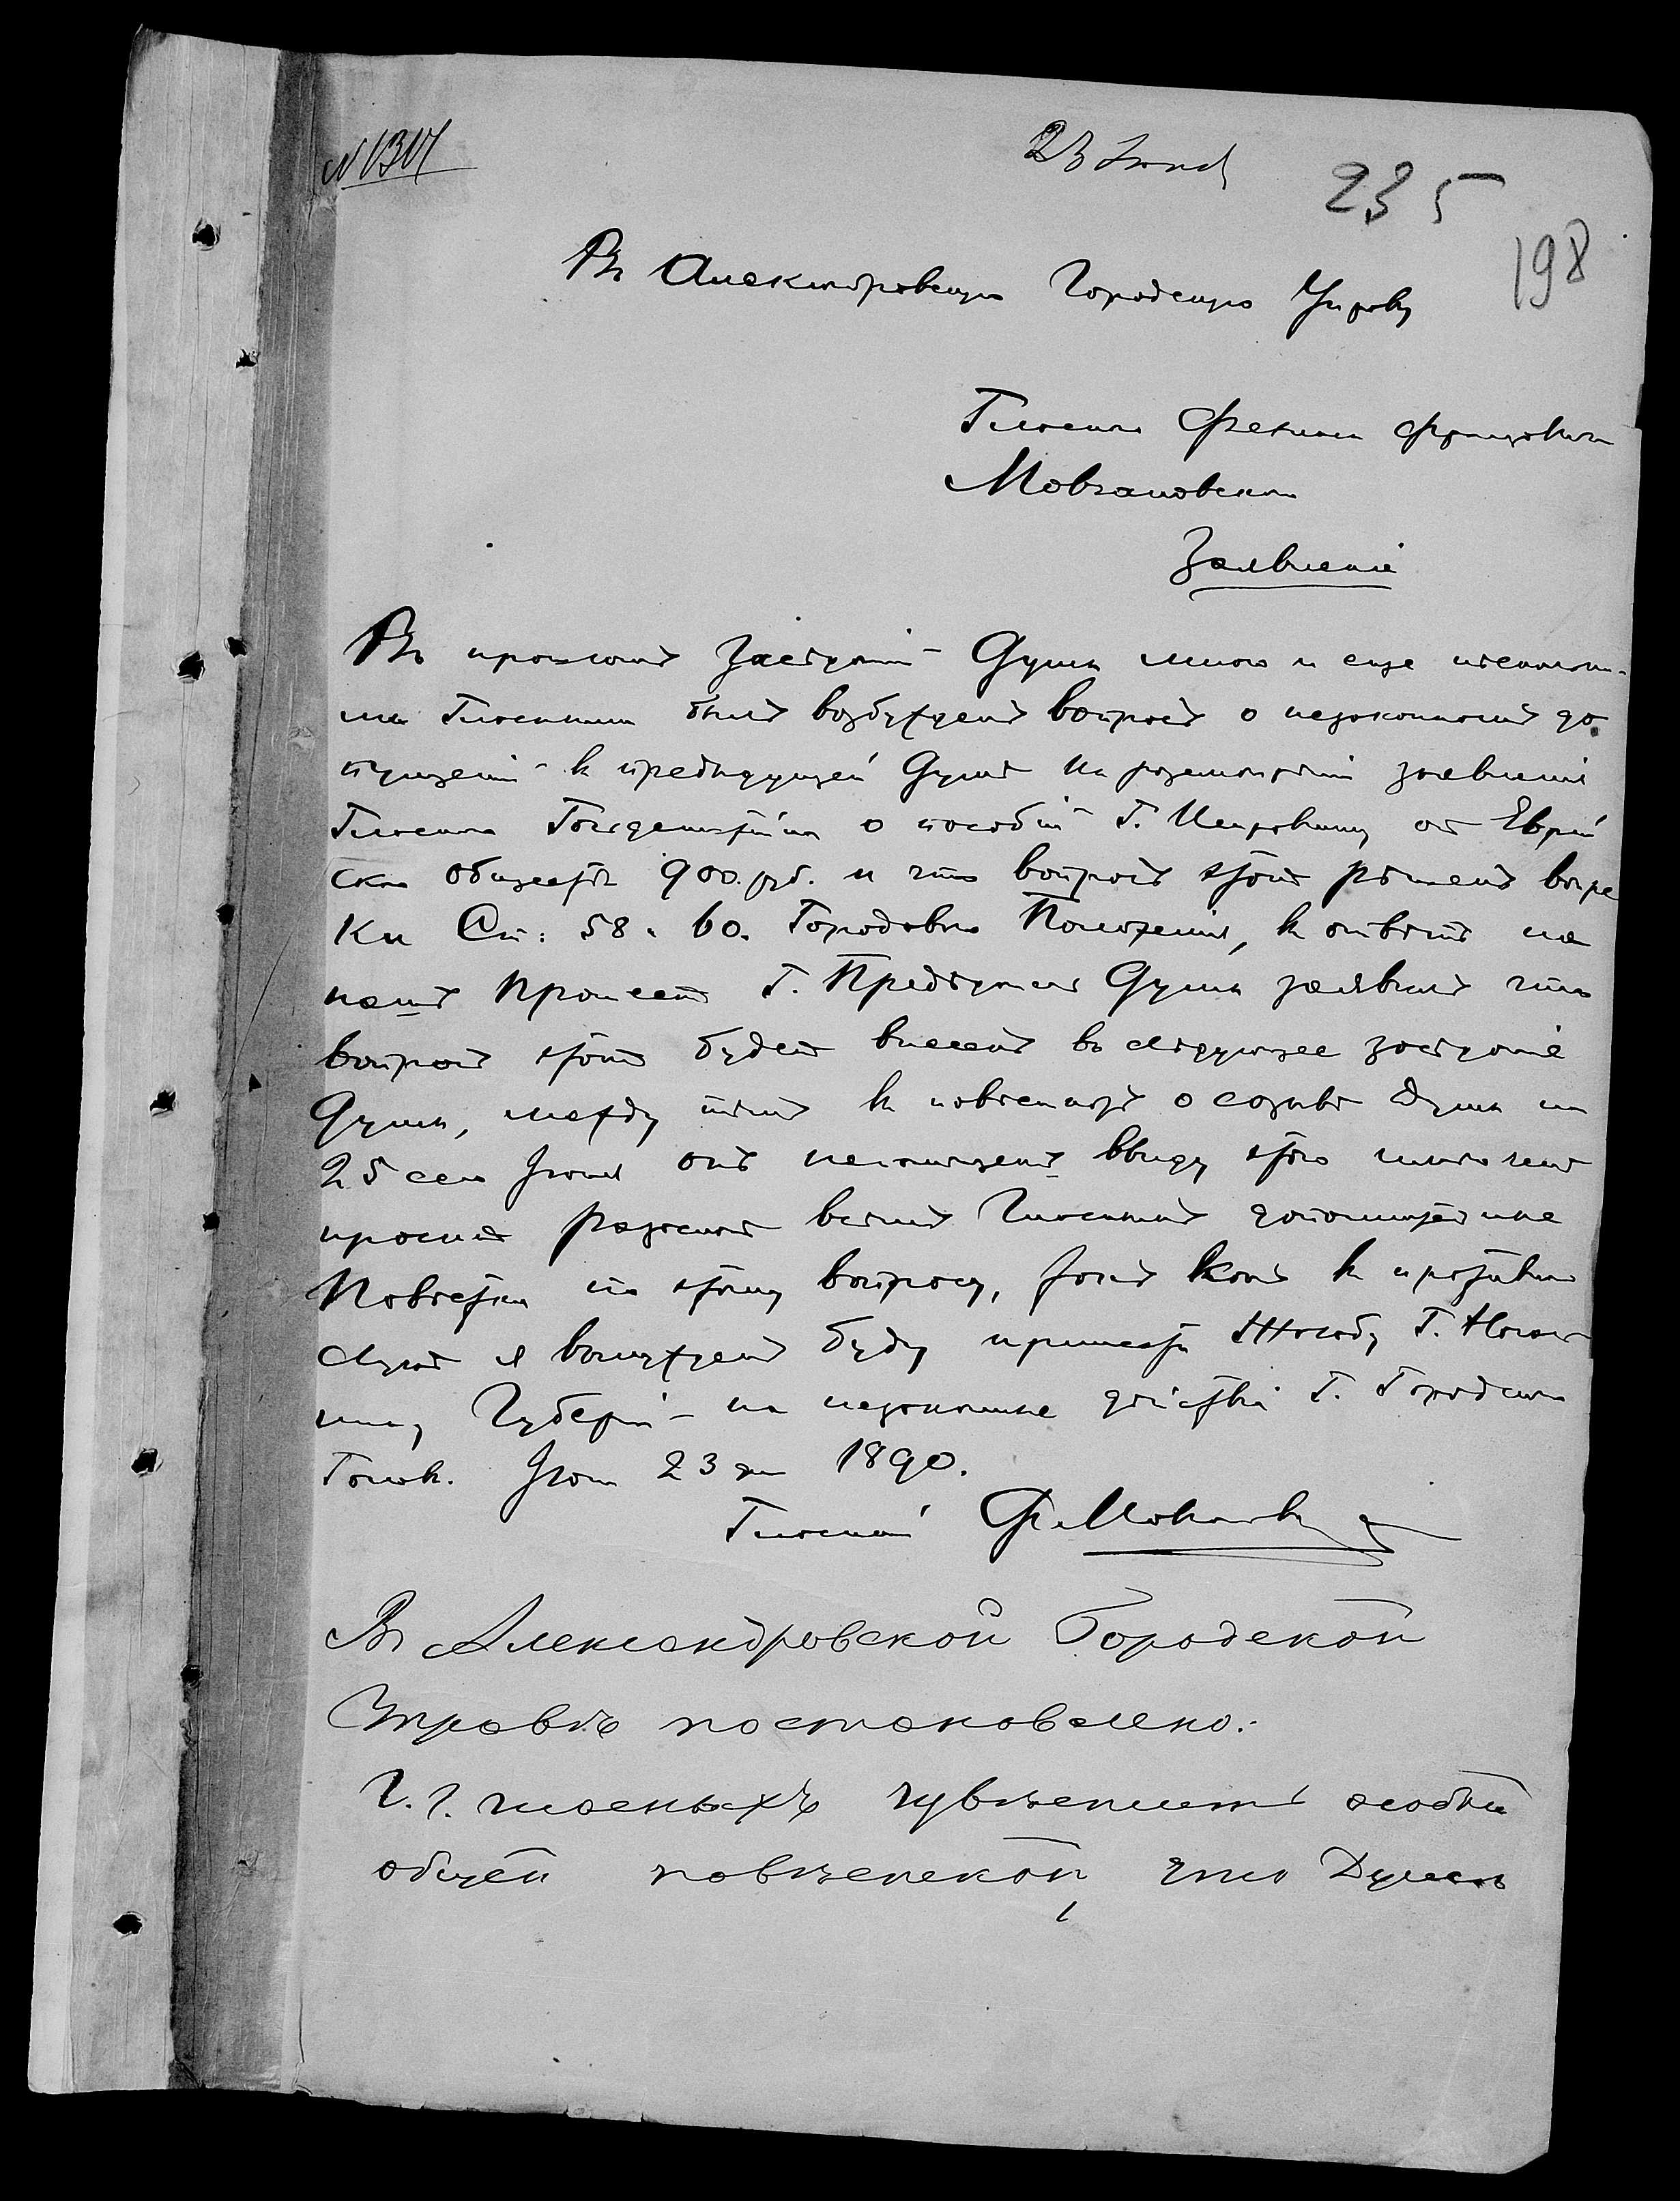 N 1314
23 Июня
235
198
Въ Александровскую Городскую Управу
Гласнаго Феликса Францовича
Мовчановскаго
Заявленіе
Въ прошломъ Засѣданіи Думы мною и еще нѣсколь-
ми Гласными былъ возбужденъ вопросъ о незаконномъ до
пущеніи въ предъидущей Думѣ на разсмотрѣніе заявленія
Гласнаго о пособіи Г. отъ Еврей
скаго общества 900. руб. и что вопросъ этотъ рѣшенъ вопре
ки Ст: 58. 60. Городоваго Положенія, въ отвѣтъ на
нашъ протестъ Г. Предсѣдатель Думы заявилъ что
вопросъ этотъ будетъ внесенъ въ слѣдующее засѣданіе
Думы, между тѣмъ въ повѣсткахъ о созывѣ Думы на
25 сего Іюня онъ непомѣщенъ ввиду этого имѣю честь
просить разослать всѣмъ Гласнымъ дополнительные
Повѣстки по этому вопросу, въ противномъ
случаѣ я вынужденъ буду принести Жалобу Г. Началь
нику Губерніи на незаконные дѣйствія Г. Городскаго
Головы. Іюня 23 дня 1890.
Гласный Ф. Мовчановскій
Въ Александровской Городской
Управѣ постановлено:
Г.г. гласныхъ увѣдомить особой
общей повѣсткой, что Думѣ